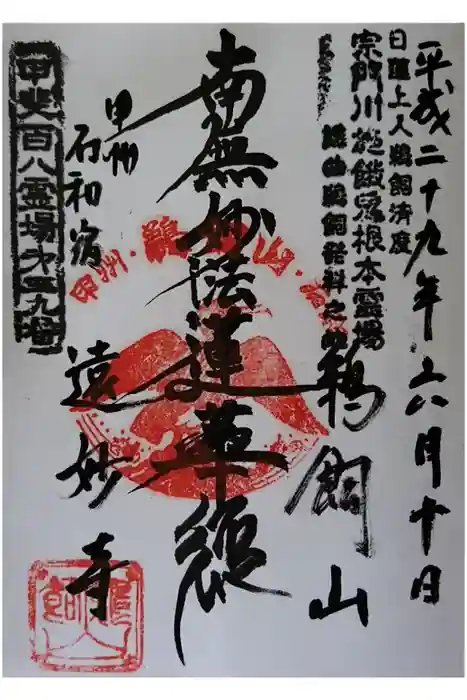 平成二十九年六月十日
日蓮上人鵜飼済度
宗門川施餓鬼根本霊場
謡曲鵜飼発祥之地
鵜飼山
南無妙法蓮華経
甲州
石和宿
遠妙寺
甲斐百八霊場第五九番
甲州・鵜飼山・